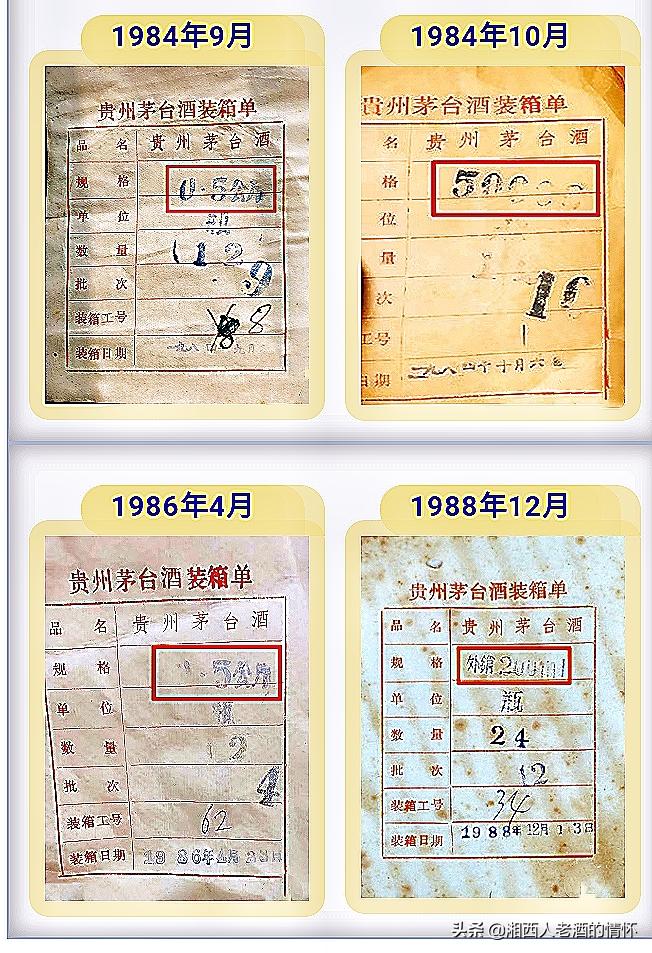 1984年9月
贵州茅台酒装箱单
品 名 贵州茅台酒
规 格 0.5公斤
单 位 瓶
数 量 12
批 次 9
装箱工号 8
装箱日期
1984年10月
贵州茅台酒装箱单
名 贵州茅台酒
格 500
位
量
次 10
工号
日期 一九八四年十月六日
1986年4月
贵州茅台酒装箱单
品 名 贵州茅台酒
规 格 5公斤
单 位 瓶
数 量 12
批 次 4
装箱工号 62
装箱日期 1986年4月29日
1988年12月
贵州茅台酒装箱单
品 名 贵州茅台酒
规 格 外销200ml
单 位 瓶
数 量 24
批 次 12
装箱工号 34
装箱日期 1988年12月13日
头条 @湘西人老酒的情怀